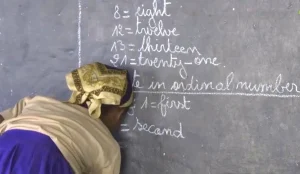 8 = eight
12 = twelve
13 = thirteen
21 = twenty-one.
te in ordinal number
1 = first
= second